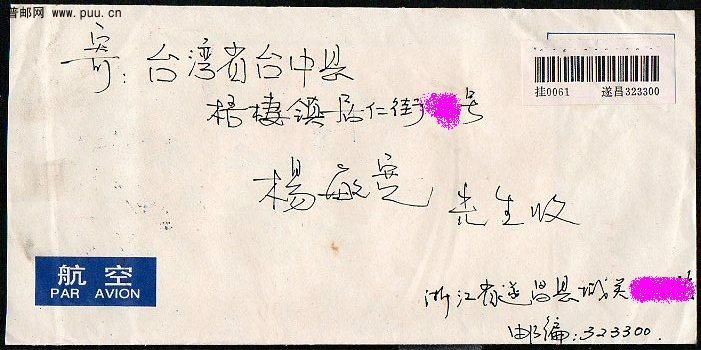 普邮网 www.puu.cn
寄：台湾省台中县
梧棲镇居仁街 号
挂0061 遂昌323300
杨敏 先生收
航空
PAR AVION
浙江省遂昌县城关
邮编：323300.